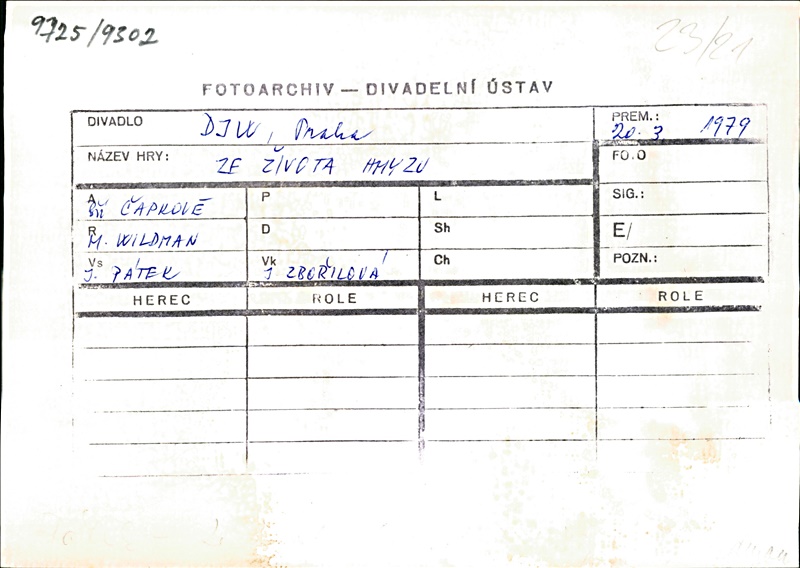 9725/9302
23/21
FOTOARCHIV — DIVADELNÍ ÚSTAV
DIVADLO DJW, Praha
PREM.: 20. 3 1979
NÁZEV HRY: ZE ŽIVOTA HMYZU
FO.O
A BŘÍ ČAPKOVÉ
P
L
SIG.:
R M. WILDMAN
D
Sh
E/
Vs J. PÁTEK
Vk J ZBOŘILOVÁ
Ch
POZN.:
HEREC ROLE HEREC ROLE